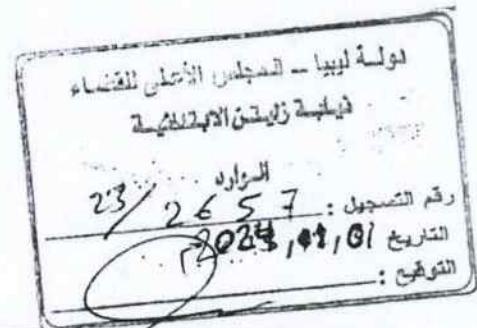 دولة ليبيا – المجلس الأعلى للقضاء
نيابة زليتن الابتدائية
الوارد
رقم التسجيل : 2657 / 23
التاريخ
التوقيع :